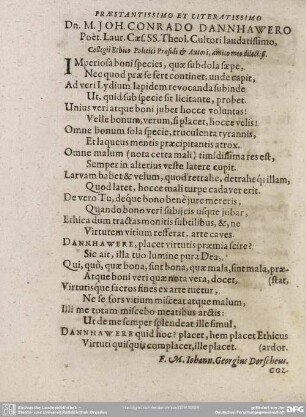 PRÆSTANTISSIMO ET LITERATISSIMO
Dn. M. JOH. CONRADO DANNHAWERO
Poët. Laur. Cæs. SS. Theol. Cultori laudatissimo,
Collegii Ethico-Politici Præsidi & Autori, amico meo dilectiss.
IMperiosa boni species, quæ subdola sæpe,
Nec quod præ se fert continet, unde capit,
Ad veri Lydium lapidem revocanda subinde
Ut, quid sub specie sit licitante, probet.
Unius veri atque boni jubet hocce voluntas!
Velle bonum, verum, si placet, hocce velis!
Omne bonum sola specie, truculenta tyrannis,
Et laqueus mentis præcipitantis atrox.
Omne malum (nota certa mali) timidissima res est,
Semper in alterius veste latere cupit.
Larvam habet & velum, quod retrahe, detrahe illam,
Quod latet, hocce mali turpe cadaver erit.
De vero Tu, de que bono benè jure mereris,
Quando boni veri subjicis usque jubar,
Ethica dum tractas monitis subtilibus, &, ne
Virtutem vitium refferat, arte caves.
DANNHAWERE, placet virtutis præmia scire?
Sic ait, illa tuo lumine pura Dea,
Qui, quò, quæ bona, sint bona, quæ mala, sint mala, præ-
Atque boni veri quæ nota vera, docet, (stat,
Virtutisque sacros fines ex arte tuetur,
Ne se fors vitium misceat atque malum,
Illi me totam misceho meatibus arctis:
Ut de me semper splendeat ille simul,
DANNHAWERE quid hoc? placet, hem placet Ethicus
Virtuti quisquis complacet, ille placet. (ardor.
F. M. Iohann. Georgius Dorscheus.
COL-